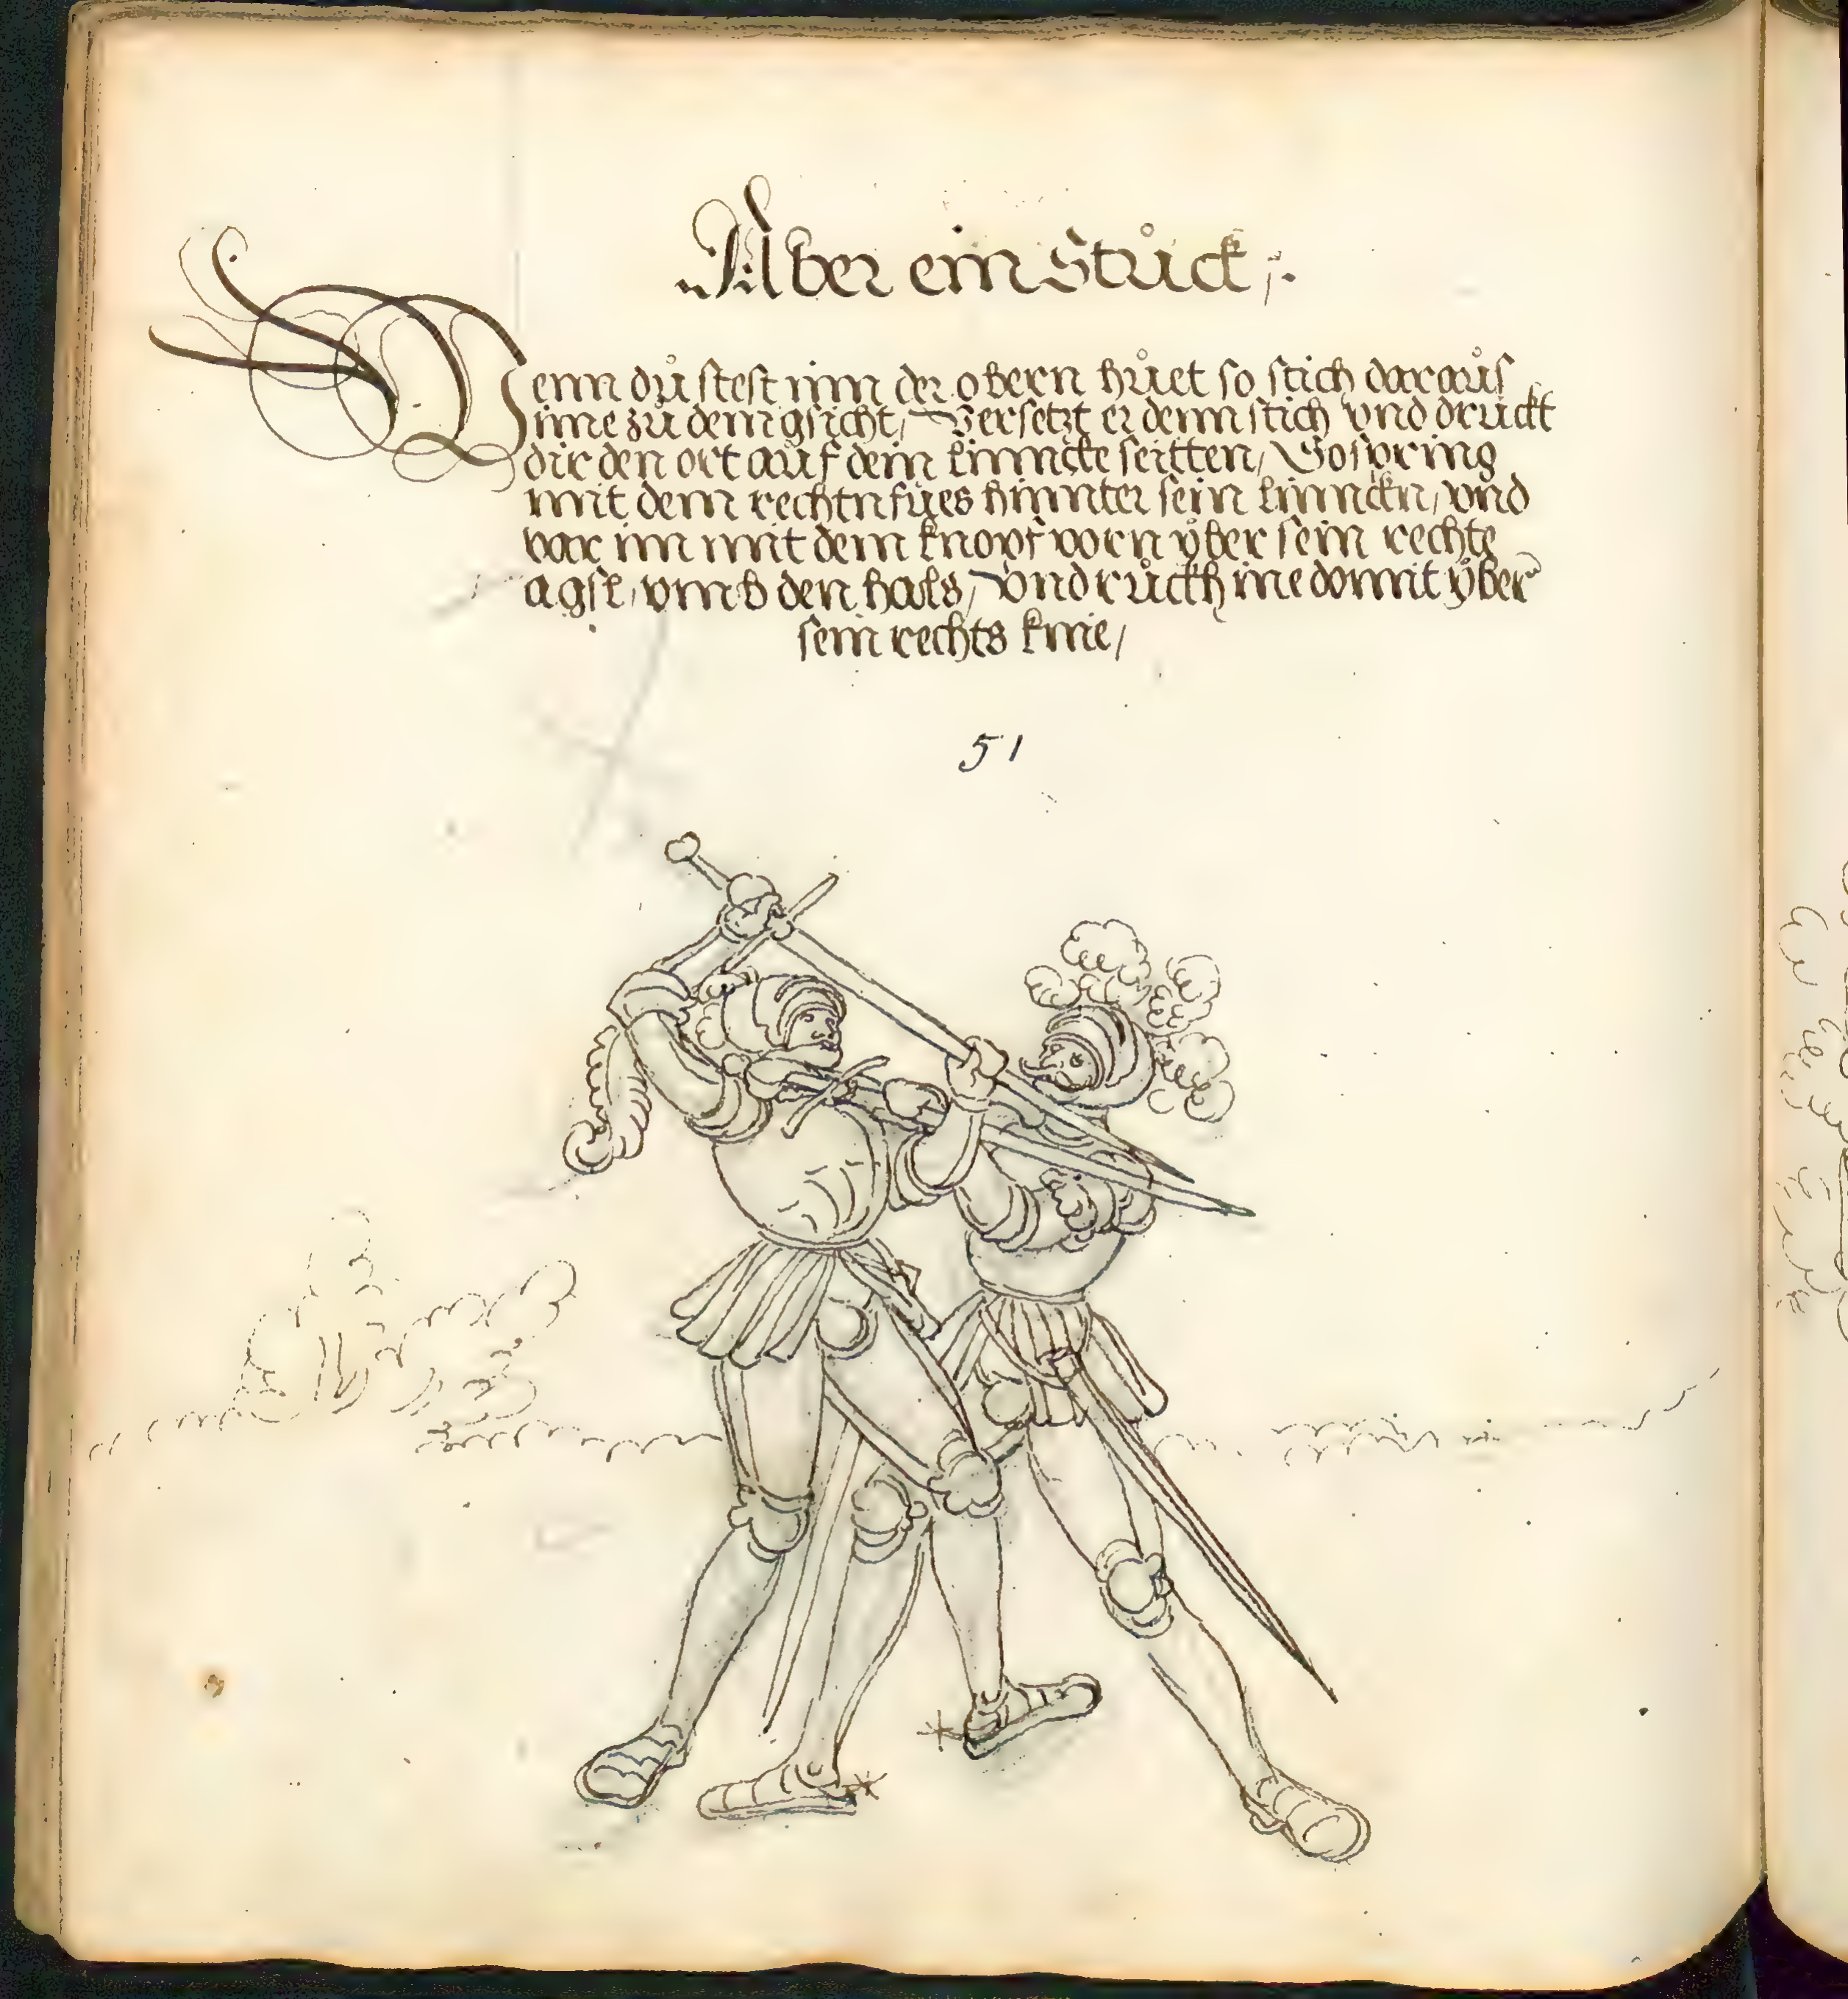 Aber ein Stůck
Wenn dů stest inn der obern hůet so stich daraůs
ime zů dem gsicht, Versetzt er denn stich vnd drückt
dir den ort aůf dein linncke seitten, So spring
mit dem rechtn fües hinnter sein linnckn, vnd
var im mit dem knopf vorn ÿber sein rechte
agsl, vmb den hals, Vnd růckh ine domit ÿber
sein rechts knie,
51